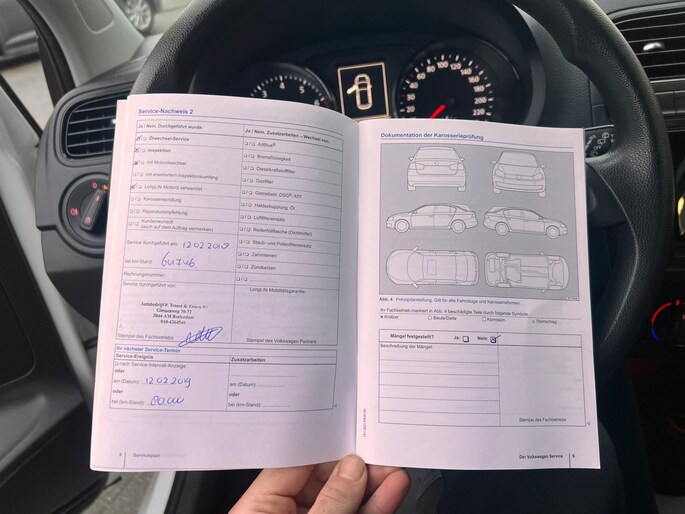 Service-Nachweis 2
Ja / Nein. Durchgeführt wurde:
Ölwechsel-Service
Inspektion
mit Motorölwechsel
mit erweitertem Inspektionsumfang
LongLife Motoröl verwendet
Karosserieprüfung
Reparaturempfehlung
Kundenwunsch
(auch auf dem Auftrag vermerken)
Service durchgeführt am: 12 02 2019
bei km-Stand:
Rechnungsnummer:
Service durchgeführt von:
Rotterdam
Stempel des Fachbetriebs
Ja / Nein. Zusatzarbeiten – Wechsel von:
AdBlue®
Bremsflüssigkeit
Dieselkraftstofffilter
Gasfilter
Getriebeöl, DSG®, ATF
Haldexkupplung, Öl
Luftfiltereinsatz
Reifenfüllflasche (Dichtmittel)
Staub- und Pollenfiltereinsatz
Zahnriemen
Zündkerzen
LongLife Mobilitätsgarantie:
Stempel des Volkswagen Partners
Ihr nächster Service-Termin
Service-Ereignis
Zusatzarbeiten
nach Service-Intervall-Anzeige
oder
am (Datum): 12 02 2019
oder
bei (km-Stand):
am (Datum):
oder
bei (km-Stand):
8 Serviceplan
Dokumentation der Karosserieprüfung
Abb. 4 Prinzipdarstellung. Gilt für alle Fahrzeuge und Karosserieformen.
Ihr Fachbetrieb markiert in Abb. 4 beschädigte Teile durch folgende Symbole:
Kratzer
Beule/Delle
Korrosion
Steinschlag
Mängel festgestellt? Ja: Nein:
Beschreibung der Mängel:
Stempel des Fachbetriebs
Der Volkswagen Service 9
20
40
60
80
100
120
140
160
180
200
220